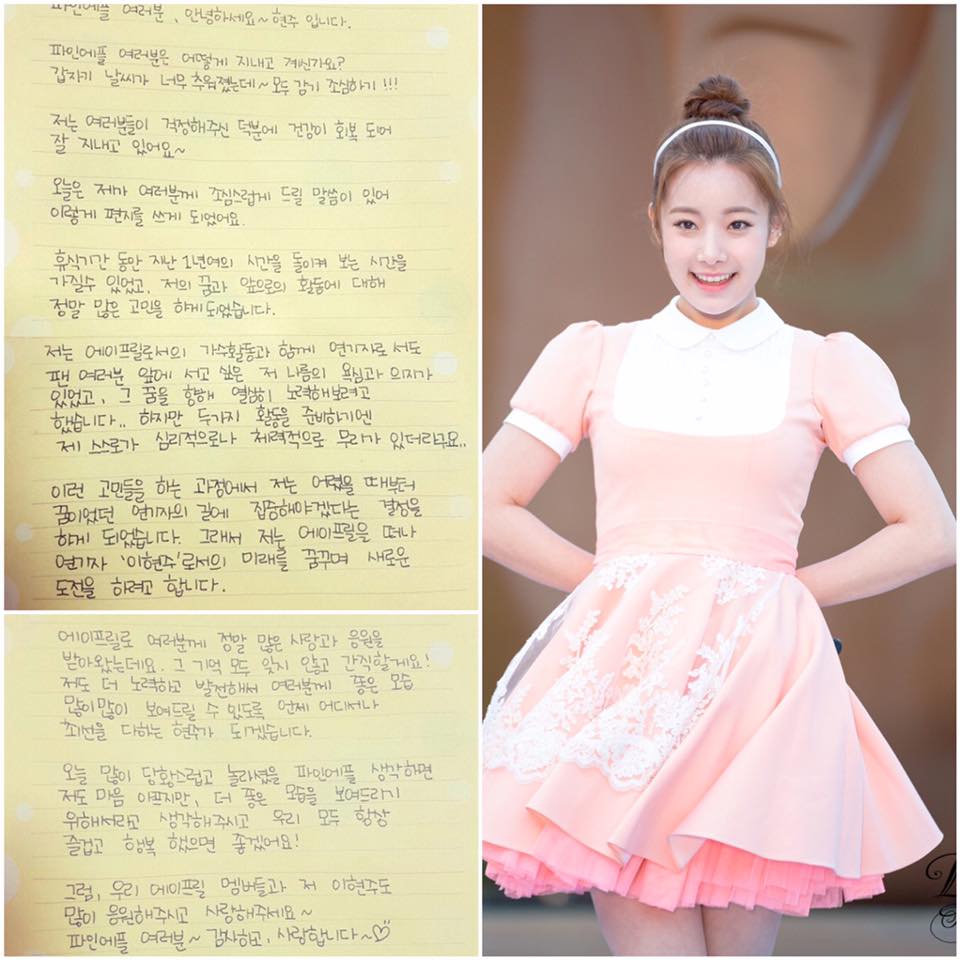 파인에플 여러분, 안녕하세요~ 현주 입니다.
파인에플 여러분은 어떻게 지내고 계신가요?
갑자기 날씨가 너무 추워졌는데~ 모두 감기 조심하기!!!
저는 여러분들이 걱정해주신 덕분에 건강이 회복 되어
잘 지내고 있어요~
오늘은 제가 여러분께 조심스럽게 드릴 말씀이 있어
이렇게 편지를 쓰게 되었어요.
휴식기간 동안 지난 1년여의 시간을 돌이켜 보는 시간을
가질수 있었고, 저의 꿈과 앞으로의 활동에 대해
정말 많은 고민을 하게되었습니다.
저는 에이프릴로서의 가수활동과 함께 연기자로서도
팬 여러분 앞에 서고 싶은 저 나름의 욕심과 의지가
있었고, 그 꿈을 향해 열심히 노력해보려고
했습니다.. 하지만 두가지 활동을 준비하기엔
제 스스로가 심리적으로나 체력적으로 무리가 있더라구요..
이런 고민들을 하는 과정에서 저는 어렸을 때부터
꿈이었던 연기자의 길에 집중해야겠다는 결정을
하게 되었습니다. 그래서 저는 에이프릴을 떠나
연기자 '이현주'로서의 미래를 꿈꾸며 새로운
도전을 하려고 합니다.
에이프릴로 여러분께 정말 많은 사랑과 응원을
받아왔는데요. 그 기억 모두 잊지 않고 간직할게요!
저도 더 노력하고 발전해서 여러분께 좋은 모습
많이많이 보여드릴 수 있도록 언제 어디서나
최선을 다하는 현주가 되겠습니다.
오늘 많이 당황스럽고 놀라셨을 파인에플 생각하면
저도 마음 아프지만, 더 좋은 모습을 보여드리기
위해서라고 생각해주시고 우리 모두 항상
즐겁고 행복 했으면 좋겠어요!
그럼, 우리 에이프릴 멤버들과 저 이현주도
많이 응원해주시고 사랑해주세요~
파인에플 여러분~ 감사하고, 사랑합니다~